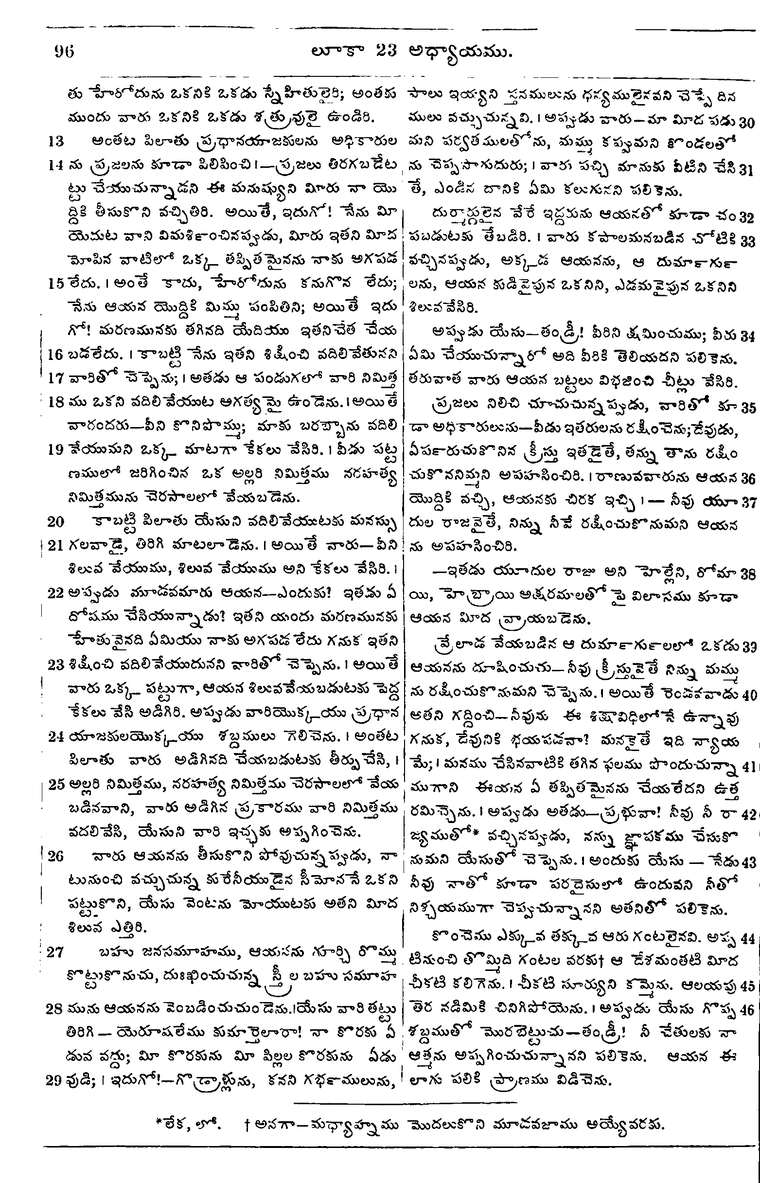 96 లూకా 23 అధ్యాయము.
తు హేరోదును ఒకనికి ఒకడు స్నేహితులైరి; అంతకు
ముందు వారు ఒకనికి ఒకడు శత్రువులై ఉండిరి.
13 అంతట పిలాతు ప్రధానయాజకులను అధికారుల
14 ను ప్రజలను కూడా పిలిపించి।—ప్రజలు తిరగబడేట
ట్టు చేయుచున్నాడని ఈ మనుష్యుని మీరు నా యొ
ద్దికి తీసుకొని వచ్చితిరి. అయితే, ఇదుగో! నేను మీ
యెదుట వాని విమర్శించినప్పుడు, మీరు ఇతని మీద
మోపిన వాటిలో ఒక్క తప్పితమైనను నాకు అగపడ
15 లేదు.। అంతే కాదు, హేరోదును కనుగొన లేదు;
నేను ఆయన యొద్దికి మిమ్ము పంపితిని; అయితే ఇదు
గో! మరణమునకు తగినది యేదియు ఇతనిచేత చేయ
16 బడలేదు. । కాబట్టి నేను ఇతని శిక్షించి వదిలివేతునని
17 వారితో చెప్పెను;। అతడు ఆ పండుగలో వారి నిమిత్త
18 ము ఒకని వదిలివేయుట అగత్యమై ఉండెను.।అయితే
వారందరు—వీని కొనిపొమ్ము; మాకు బరబ్బాను వదిలి
19 వేయుమని ఒక్క మాటగా కేకలు వేసిరి. । వీడు పట్ట
ణములో జరిగించిన ఒక అల్లరి నిమిత్తము నరహత్య
నిమిత్తమును చెరసాలలో వేయబడెను.
20 కాబట్టి పిలాతు యేసుని వదిలివేయుటకు మనస్సు
21 గలవాడై, తిరిగి మాటలాడెను. । అయితే వారు—వీని
శిలువ వేయుము, శిలువ వేయుము అని కేకలు వేసిరి. ।
22 అప్పుడు మూడవమారు ఆయన—ఎందుకు? ఇతడు ఏ
దోషము చేసియున్నాడు? ఇతని యందు మరణమునకు
హేతువైనది ఏమియు నాకు అగపడ లేదు గనుక ఇతని
23 శిక్షించి వదిలివేయుదునని వారితో చెప్పెను. । అయితే
వారు ఒక్క పట్టుగా, ఆయన శిలువవేయబడుటకు పెద్ద
కేకలు వేసి అడిగిరి. అప్పుడు వారియొక్కయు ప్రధాన
24 యాజకులయొక్కయు శబ్దములు గెలిచెను. । అంతట
పిలాతు వారు అడిగినది చేయబడుటకు తీర్పుచేసి, ।
25 అల్లరి నిమిత్తము, నరహత్య నిమిత్తము చెరసాలలో వేయ
బడినవాని, వారు అడిగిన ప్రకారము వారి నిమిత్తము
వదలివేసి, యేసుని వారి ఇచ్ఛకు అప్పగించెను.
26 వారు ఆయనను తీసుకొని పోవుచున్నప్పుడు, నా
టునుంచి వచ్చుచున్న కురేనీయుడైన సీమోననే ఒకని
పట్టుకొని, యేసు వెంటను మోయుటకు అతని మీద
శిలువ ఎత్తిరి.
27 బహు జనసమూహము, ఆయనను గూర్చి రొమ్ము
కొట్టుకొనుచు, దుఃఖించుచున్న స్త్రీల బహు సమూహ
28 మును ఆయనను వెంబడించుచుండెను.।యేసు వారి తట్టు
తిరిగి — యెరూషలేము కుమార్తెలారా! నా కొరకు ఏ
డువ వద్దు; మీ కొరకును మీ పిల్లల కొరకును ఏడు
29 వుడి; । ఇదుగో!—గొడ్రాళ్లును, కనని గర్భములును,
పాలు ఇయ్యని స్తనములును ధన్యములైనవని చెప్పే దిన
ములు వచ్చుచున్నవి. । అప్పుడు వారు—మా మీద పడు 30
మని పర్వతములతోను, మమ్ము కప్పుమని కొండలతో
ను చెప్పసాగుదురు; । వారు పచ్చి మానుకు వీటిని చేసి 31
తే, ఎండిన దానికి ఏమి కలుగునని పలికెను.
దుర్మార్గులైన వేరే ఇద్దరును ఆయనతో కూడా చం 32
పబడుటకు తేబడిరి. । వారు కపాలమనబడిన చోటికి 33
వచ్చినప్పుడు, అక్కడ ఆయనను, ఆ దుర్మార్గు
లను, ఆయన కుడివైపున ఒకనిని, ఎడమవైపున ఒకనిని
శిలువవేసిరి.
అప్పుడు యేసు—తండ్రీ! వీరిని క్షమించుము; వీరు 34
ఏమి చేయుచున్నారో అది వీరికి తెలియదని పలికెను.
తరువాత వారు ఆయన బట్టలు విభజించి చీట్లు వేసిరి.
ప్రజలు నిలిచి చూచుచున్నప్పుడు, వారితో కూ 35
డా అధికారులును—వీడు ఇతరులను రక్షించెను; దేవుడు,
ఏర్పరుచుకొనిన క్రీస్తు ఇతడైతే, తన్ను తాను రక్షిం
చుకొననిమ్మని అపహసించిరి. । రాణువవారును ఆయన 36
యొద్దికి వచ్చి, ఆయనకు చిరక ఇచ్చి । — నీవు యూ 37
దుల రాజవైతే, నిన్ను నీవే రక్షించుకొనుమని ఆయన
ను అపహసించిరి.
—ఇతడు యూదుల రాజు అని హెల్లేని, రోమా 38
యి, హెబ్రాయి అక్షరములతో పై విలాసము కూడా
ఆయన మీద వ్రాయబడెను.
వ్రేలాడ వేయబడిన ఆ దుర్మార్గులలో ఒకడు 39
ఆయనను దూషించుచు—నీవు క్రీస్తువైతే నిన్ను మమ్ము
ను రక్షించుకొనుమని చెప్పెను. । అయితే రెండవవాడు 40
అతని గద్దించి—నీవును ఈ శిక్షావిధిలోనే ఉన్నావు
గనుక, దేవునికి భయపడవా? మనకైతే ఇది న్యాయ
మే; । మనము చేసినవాటికి తగిన ఫలము పొందుచున్నా 41
ముగాని ఈయన ఏ తప్పితమైనను చేయలేదని ఉత్త
రమిచ్చెను. । అప్పుడు అతడు—ప్రభువా! నీవు నీ రా 42
జ్యముతో* వచ్చినప్పుడు, నన్ను జ్ఞాపకము చేసుకొ
నుమని యేసుతో చెప్పెను. । అందుకు యేసు — నేడు 43
నీవు నాతో కూడా పరదైసులో ఉందువని నీతో
నిశ్చయముగా చెప్పుచున్నానని అతనితో పలికెను.
కొంచెము ఎక్కువ తక్కువ ఆరు గంటలైనవి. అప్ప 44
టినుంచి తొమ్మిది గంటల వరకు† ఆ దేశమంతటి మీద
చీకటి కలిగెను. । చీకటి సూర్యుని కమ్మెను. ఆలయపు 45
తెర నడిమికి చినిగిపోయెను. । అప్పుడు యేసు గొప్ప 46
శబ్దముతో మొరబెట్టుచు—తండ్రీ! నీ చేతులకు నా
ఆత్మను అప్పగించుచున్నానని పలికెను. ఆయన ఈ
లాగు పలికి ప్రాణము విడిచెను.
*లేక, లో. † అనగా—మధ్యాహ్నము మొదలుకొని మూడవజాము అయ్యేవరకు.